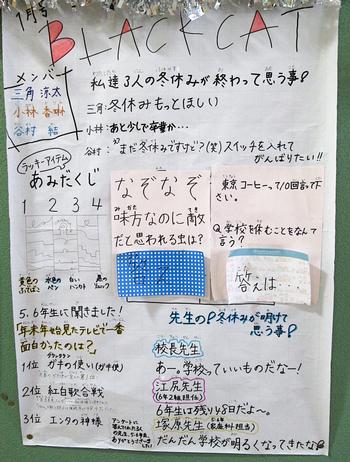 1月号
BLACK CAT
メンバー
三角 涼太
小林 香琳
谷村 結
私達3人の冬休みが終わって思う事!
三角:冬休みもっとほしい
小林:あと少しで卒業か…
谷村:まだ冬休みですけど?(笑)スイッチを入れて
がんばりたい!!
ラッキーアイテム
あみだくじ
1 2 3 4
黄色の
ふでばこ
水色の
ペン
白い
ハンカチ
黒の
なぞなぞ
味方なのに敵
だと思われる虫は?
答え
東京コーヒーって10回言って下
さい。
Q.学校を休むことをなんて
言う?
答えは…
5.6年生に聞きました!
「年末年始見たテレビで一番
面白かったのは?」
1位 ガチの使い(ガキ使)
2位 紅白歌合戦
3位 エンタの神様
アンケートに
ありがとう
先生の!冬休みが明けて
思う事!
校長先生
あー。学校っていいものだなー!
江尻先生
(6年2組担任)
6年生は残り48日だよ〜。
塚原先生(家庭科担当)
だんだん学校が明るくなってきたな